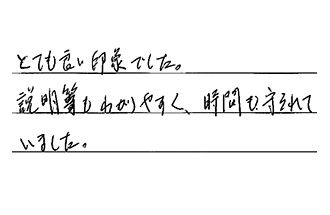 とても良い印象でした。
説明等もわかりやすく、時間も守られて
いました。